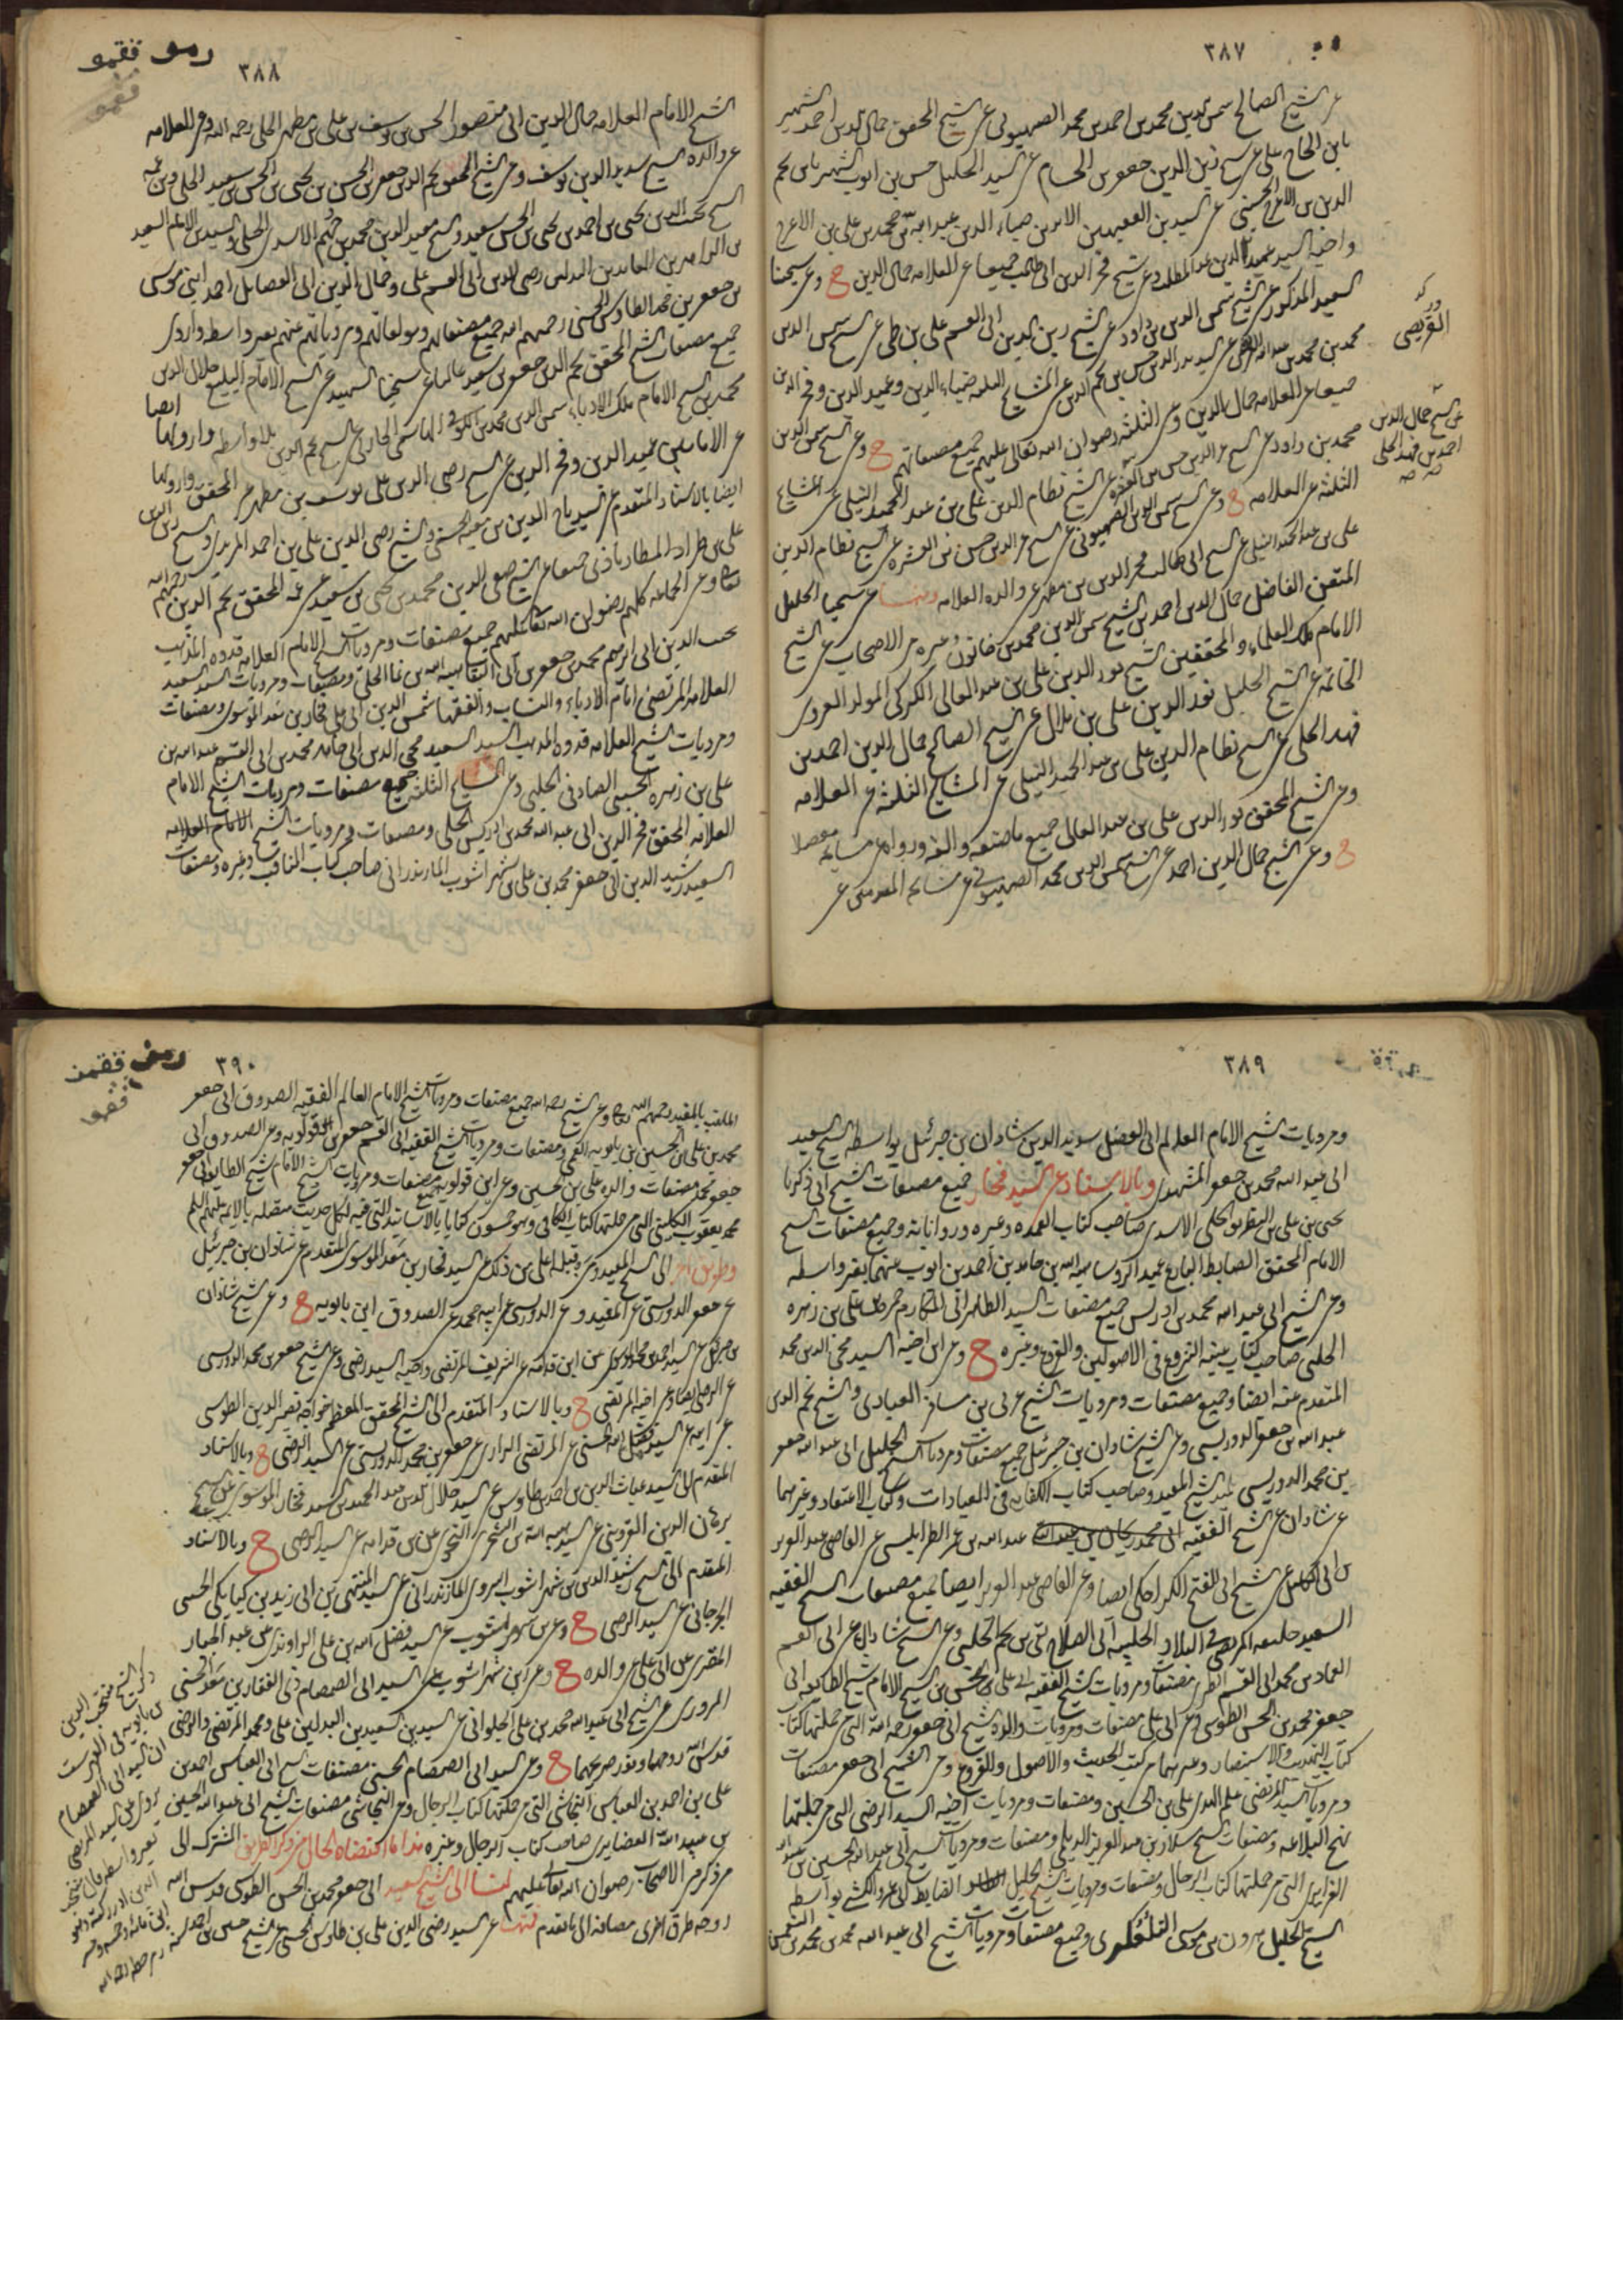 ٣٨٧
عن الشيخ الصالح شمس الدين محمد بن احمد بن محمد الصهيوني عن الشيخ المحقق جمال الدين احمد الشهير
بابن الحاج علي عن الشيخ زين الدين جعفر بن الحسام عن السيد الجليل حسن بن ايوب الشهير بابن نجم
الدين بن الاعرج الحسيني عن السيدين الفقيهين ضياء الدين عبد الله بن محمد بن علي بن الاعرج
واخيه السيد عميد الدين عبد المطلب وعن الشيخ فخر الدين ابي طالب جميعا عن العلامة جمال الدين ح وعن شيخنا
السعيد المذكور عن الشيخ شمس الدين بن داود عن الشيخ زين الدين ابي القسم علي بن طي عن الشيخ شمس الدين
محمد بن محمد بن عبد الله العريضي عن السيد بدر الدين حسن بن نجم الدين عن المشايخ الثلثة ضياء الدين وعميد الدين وفخر الدين
جميعا عن العلامة جمال الدين وعن الثلثة رضوان الله تعالى عليهم جميع مصنفاتهم ح وعن الشيخ شمس الدين
محمد بن داود عن الشيخ عز الدين حسن بن العشرة عن الشيخ نظام الدين علي بن عبد الحميد النيلي عن المشايخ
الثلثة عن العلامة ح وعن الشيخ شمس الدين الصهيوني عن الشيخ عز الدين حسن بن العشرة عن الشيخ نظام الدين
علي بن عبد الحميد النيلي عن الشيخ ابي طالب فخر الدين بن مطهر عن والده العلامة ومنها عن شيخنا الجليل
المتقن الفاضل جمال الدين احمد بن الشيخ شمس الدين محمد بن خاتون وغيره من الاصحاب عن الشيخ
الامام ملك العلماء والمحققين الشيخ نور الدين علي بن عبد العالي الكركي المولد الغروي
الخاتمة عن الشيخ الجليل نور الدين علي بن هلال عن الشيخ الصالح جمال الدين احمد بن
فهد الحلي عن الشيخ نظام الدين علي بن عبد الحميد النيلي عن المشايخ الثلثة عن العلامة
وعن الشيخ المحقق نور الدين علي بن عبد العالي جميع ما صنفه والفه ورواه عن مشايخه مفصلا
ح وعن الشيخ جمال الدين احمد عن الشيخ شمس الدين محمد الصهيوني عن مشايخه المقدمين عن
العريضي
عن الشيخ جمال الدين
احمد بن فهد الحلي
صح صح
٣٨٨
الشيخ الامام العلامة جمال الدين ابي منصور الحسن بن يوسف بن علي بن مطهر الحلي رحمه الله وعن العلامة
عن والده الشيخ سديد الدين يوسف وعن الشيخ المحقق نجم الدين جعفر بن الحسن بن يحيى بن الحسن بن سعيد الحلي وعن ابن عمه
الشيخ نجيب الدين يحيى بن احمد بن يحيى بن الحسن بن سعيد والشيخ مفيد الدين محمد بن جهم الاسدي الحلي والسيدين الامامين السعيد
بن الزاهدين العابدين رضي الدين ابي القسم علي وجمال الدين ابي الفضايل احمد ابني موسى
بن جعفر بن محمد الطاوس الحسني رحمهم الله جميع مصنفاتهم ومؤلفاتهم ومروياتهم عنهم بغير واسطة واروي
جميع مصنفات الشيخ المحقق نجم الدين جعفر بن سعيد عاليا عن شيخنا الشهيد عن الشيخ الامام البليغ جلال الدين
محمد بن الشيخ الامام ملك الادباء شمس الدين محمد بن الكوفي الهاشمي الحارثي عن الشيخ نجم الدين بلا واسطة وارويها ايضا
عن الامامين عميد الدين وفخر الدين عن الشيخ رضي الدين علي بن يوسف بن مطهر عن المحقق وارويها
ايضا بالاسناد المتقدم عن السيد تاج الدين بن معية الحسني والشيخ رضي الدين علي بن احمد المزيدي والشيخ زين الدين
علي بن طراد المطارباذي جميعا عن الشيخ صفي الدين محمد بن يحيى بن سعيد عن عمه المحقق نجم الدين رحمهم الله
تعالى وعن الجماعة كلهم رضوان الله تعالى عليهم جميع مصنفات ومرويات الشيخ الامام العلامة قدوة المذهب
نجيب الدين ابي ابرهيم محمد بن جعفر بن ابي البقا هبة الله بن نما الحلي ومصنفات ومرويات السيد السعيد
العلامة المرتضى امام الادباء والنساب والفقها شمس الدين ابي علي فخار بن معد الموسوي ومصنفات
ومرويات الشيخ العلامة قدوة المذهب السيد السعيد محيي الدين ابي حامد محمد بن ابي القسم عبد الله بن
علي بن زهرة الحسيني الصادقي الحلبي وعن المشايخ الثلثة جميع مصنفات ومرويات الشيخ الامام
العلامة المحقق فخر الدين ابي عبد الله محمد بن ادريس الحلي ومصنفات ومرويات الشيخ الامام العلامة
السعيد رشيد الدين ابي جعفر محمد بن علي بن شهراشوب المازندراني صاحب كتاب المناقب وغيره ومصنفات
٣٨٩
ومرويات الشيخ الامام العالم ابي الفضل سديد الدين شاذان بن جبرئيل بواسطة الشيخ السعيد
ابي عبد الله محمد بن جعفر المشهدي وبالاسناد عن السيد فخار جميع مصنفات الشيخ ابي زكريا
يحيى بن علي بن البطريق الحلي الاسدي صاحب كتاب العمدة وغيره ورواياته وجميع مصنفات الشيخ
الامام المحقق الضابط البارع عميد الرؤسا هبة الله بن حامد بن احمد بن ايوب عنهما بغير واسطة
وعن الشيخ ابي عبد الله محمد بن ادريس جميع مصنفات السيد الطاهر ابي المكارم حمزة بن علي بن زهرة
الحلبي صاحب كتاب غنية النزوع في الاصولين والفروع وغيره ح وعن ابن اخيه السيد محيي الدين محمد
المتقدم عنه ايضا وجميع مصنفات ومرويات الشيخ عربي بن مسافر العبادي والشيخ نجم الدين
عبد الله بن جعفر الدوريستي وعن الشيخ شاذان بن جبرئيل جميع مصنفات ومرويات الشيخ الجليل ابي عبد الله جعفر
بن محمد الدوريستي تلميذ الشيخ المفيد وصاحب كتاب الكفاية في العبادات وكتاب الاعتقاد وغيرهما
عن شاذان عن الشيخ الفقيه ابي محمد ريحان بن عبد الله عبد الله بن عمر الطرابلسي عن القاضي عبد العزيز
بن ابي كامل عن الشيخ ابي الفتح الكراجكي ايضا وعن القاضي عبد العزيز ايضا جميع مصنفات الشيخ الفقيه
السعيد خليفة المرتضى في البلاد الحلبية ابي الصلاح تقي بن نجم الحلبي وعن الشيخ شاذان عن ابي القسم
العماد بن محمد بن ابي القسم الطبري مصنفات ومرويات الشيخ الفقيه ابي علي الحسن بن الشيخ الامام شيخ الطايفة ابي
جعفر محمد بن الحسن الطوسي وعن ابي علي مصنفات ومرويات والده الشيخ ابي جعفر رحمه الله التي من جملتها كتاب
كتاب التهذيب والاستبصار وغيرهما من كتب الحديث والاصول والفروع وعن الشيخ ابي جعفر مصنفات
ومرويات السيد المرتضى علم الهدى علي بن الحسين ومصنفات ومرويات اخيه السيد الرضي التي من جملتها
نهج البلاغة ومصنفات الشيخ سلار بن عبد العزيز الديلمي ومصنفات ومرويات الشيخ ابي عبد الله الحسين بن عبيد الله
الغضايري التي من جملتها كتاب الرجال ومصنفات ومرويات الشيخ الجليل الضابط ابي عمرو الكشي بواسطة
الشيخ الجليل هرون بن موسى التلعكبري وجميع مصنفات ومرويات الشيخ ابي عبد الله محمد بن محمد بن النعمان
٣٩٠
الملقب بالمفيد رحمهم الله تعالى وعن الشيخ رحمه الله جميع مصنفات ومرويات الشيخ الامام العالم الفقيه الصدوق ابي جعفر
محمد بن علي بن الحسين بن بابويه القمي ومصنفات ومرويات الشيخ الفقيه ابي القسم جعفر بن قولويه وعن الصدوق ابي
جعفر محمد مصنفات والده علي بن الحسين وعن ابن قولويه جميع مصنفات ومرويات الشيخ الامام شيخ الطايفة ابي جعفر
محمد بن يعقوب الكليني التي من جملتها كتاب الكافي وهو خمسون كتابا بالاسانيد التي فيه لكل حديث متصلة بالايمة عليهم السلم
وطريق اخر الى الشيخ المفيد ومن قبله اعلى من ذلك عن السيد فخار بن معد الموسوي المتقدم عن شاذان بن جبرئيل
عن جعفر الدوريستي عن المفيد وعن الدوريستي عن ابيه محمد عن الصدوق ابن بابويه ح وعن الشيخ شاذان
بن جبرئيل عن السيد احمد بن محمد الموسوي عن ابن قدامة عن الشريف المرتضى واخيه السيد رضي وعن الشيخ جعفر بن محمد الدوريستي
عن الرضي ايضا وعن اخيه المرتضى ح وبالاسناد المتقدم الى الشيخ المحقق المعظم خواجة نصير الدين الطوسي
عن ابيه عن السيد فضل الله الحسني عن المرتضى الرازي عن جعفر بن محمد الدوريستي عن السيد الرضي ح وبالاسناد
المتقدم الى السيد غياث الدين بن احمد بن طاوس عن السيد جلال الدين عبد الحميد بن السيد فخار الموسوي عن الشيخ
برهان الدين القزويني عن السيد هبة الله بن الشجري النحوي عن بن قدامة عن السيد الرضي ح وبالاسناد
المتقدم الى الشيخ رشيد الدين بن شهراشوب السروي المازندراني عن السيد المنتهى بن ابي زيد بن كيابكي الحسيني
الجرجاني عن السيد الرضي ح وعن بن شهراشوب عن السيد فضل الله بن علي الراوندي عن عبد الجبار
المقري عن ابي علي عن والده ح وعن ابن شهراشوب عن السيد ابي الصمصام ذي الفقار بن معبد الحسني
المروزي عن الشيخ ابي عبد الله محمد بن علي الحلواني عن السيدين السعيدين البدلين علي ومحمد المرتضى والرضي
قدس الله روحهما ونور ضريحهما ح وعن السيد ابي الصمصام الحسني مصنفات الشيخ ابي العباس احمد بن
علي بن احمد بن العباس النجاشي التي من جملتها كتاب الرجال وعن النجاشي مصنفات الشيخ ابي عبد الله الحسين
بن عبيد الله الغضايري صاحب كتاب الرجال وغيره هذا ما اقتضاه الحال من ذكر الطريق المشترك الى
من ذكر من الاصحاب رضوان الله تعالى عليهم لنا الى الشيخ السعيد ابي جعفر محمد بن الحسن الطوسي قدس الله
روحه طرق اخرى مضافة الى ما تقدم فمنها عن السيد رضي الدين علي بن طاوس الحسني عن الشيخ حسين بن احمد
ذكر الشيخ منتجب الدين
بن بابويه في الفهرست
ان السيد ابي الصمصام
يروي عن السيد المرتضى
بغير واسطة وقال